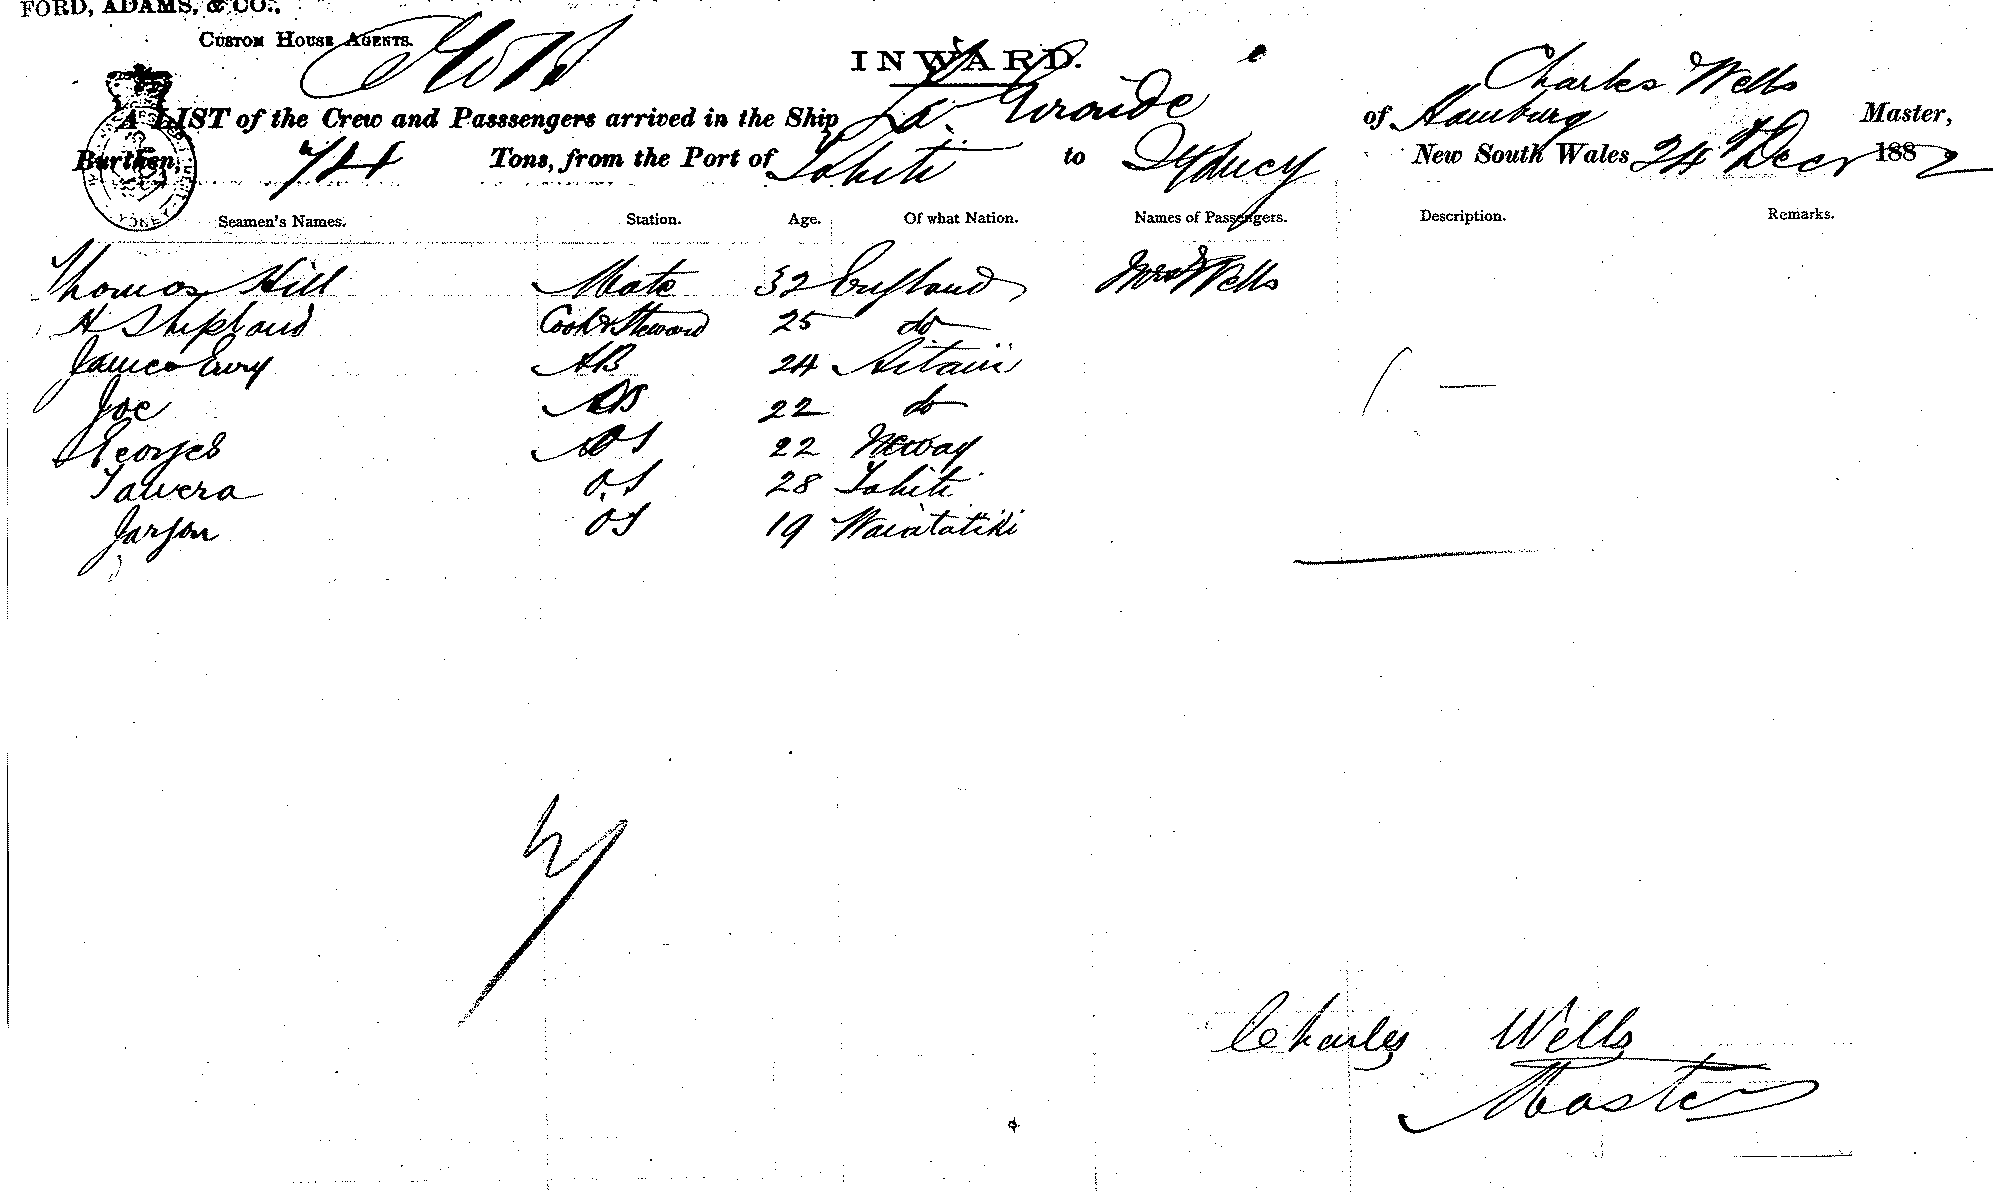 FORD, ADAMS, & CO.,
CUSTOM HOUSE AGENTS.
INWARD.
Charles Wells
A LIST of the Crew and Passsengers arrived in the Ship La Gironde of Hamburg Master,
Burthen, 74 Tons, from the Port of Tahiti to Sydney New South Wales 24th Decr 1882
Seamen's Names. Station. Age. Of what Nation. Names of Passengers. Description. Remarks.
Thomas Hill Mate 32 England Mrs Wells
H Shipland Cook & Steward 25 do
James AB 24 Aitaii
Joe AB 22 do
Georges OS 22
Tawera O.S 28 Tahiti
OS 19
Charles Wells
Master